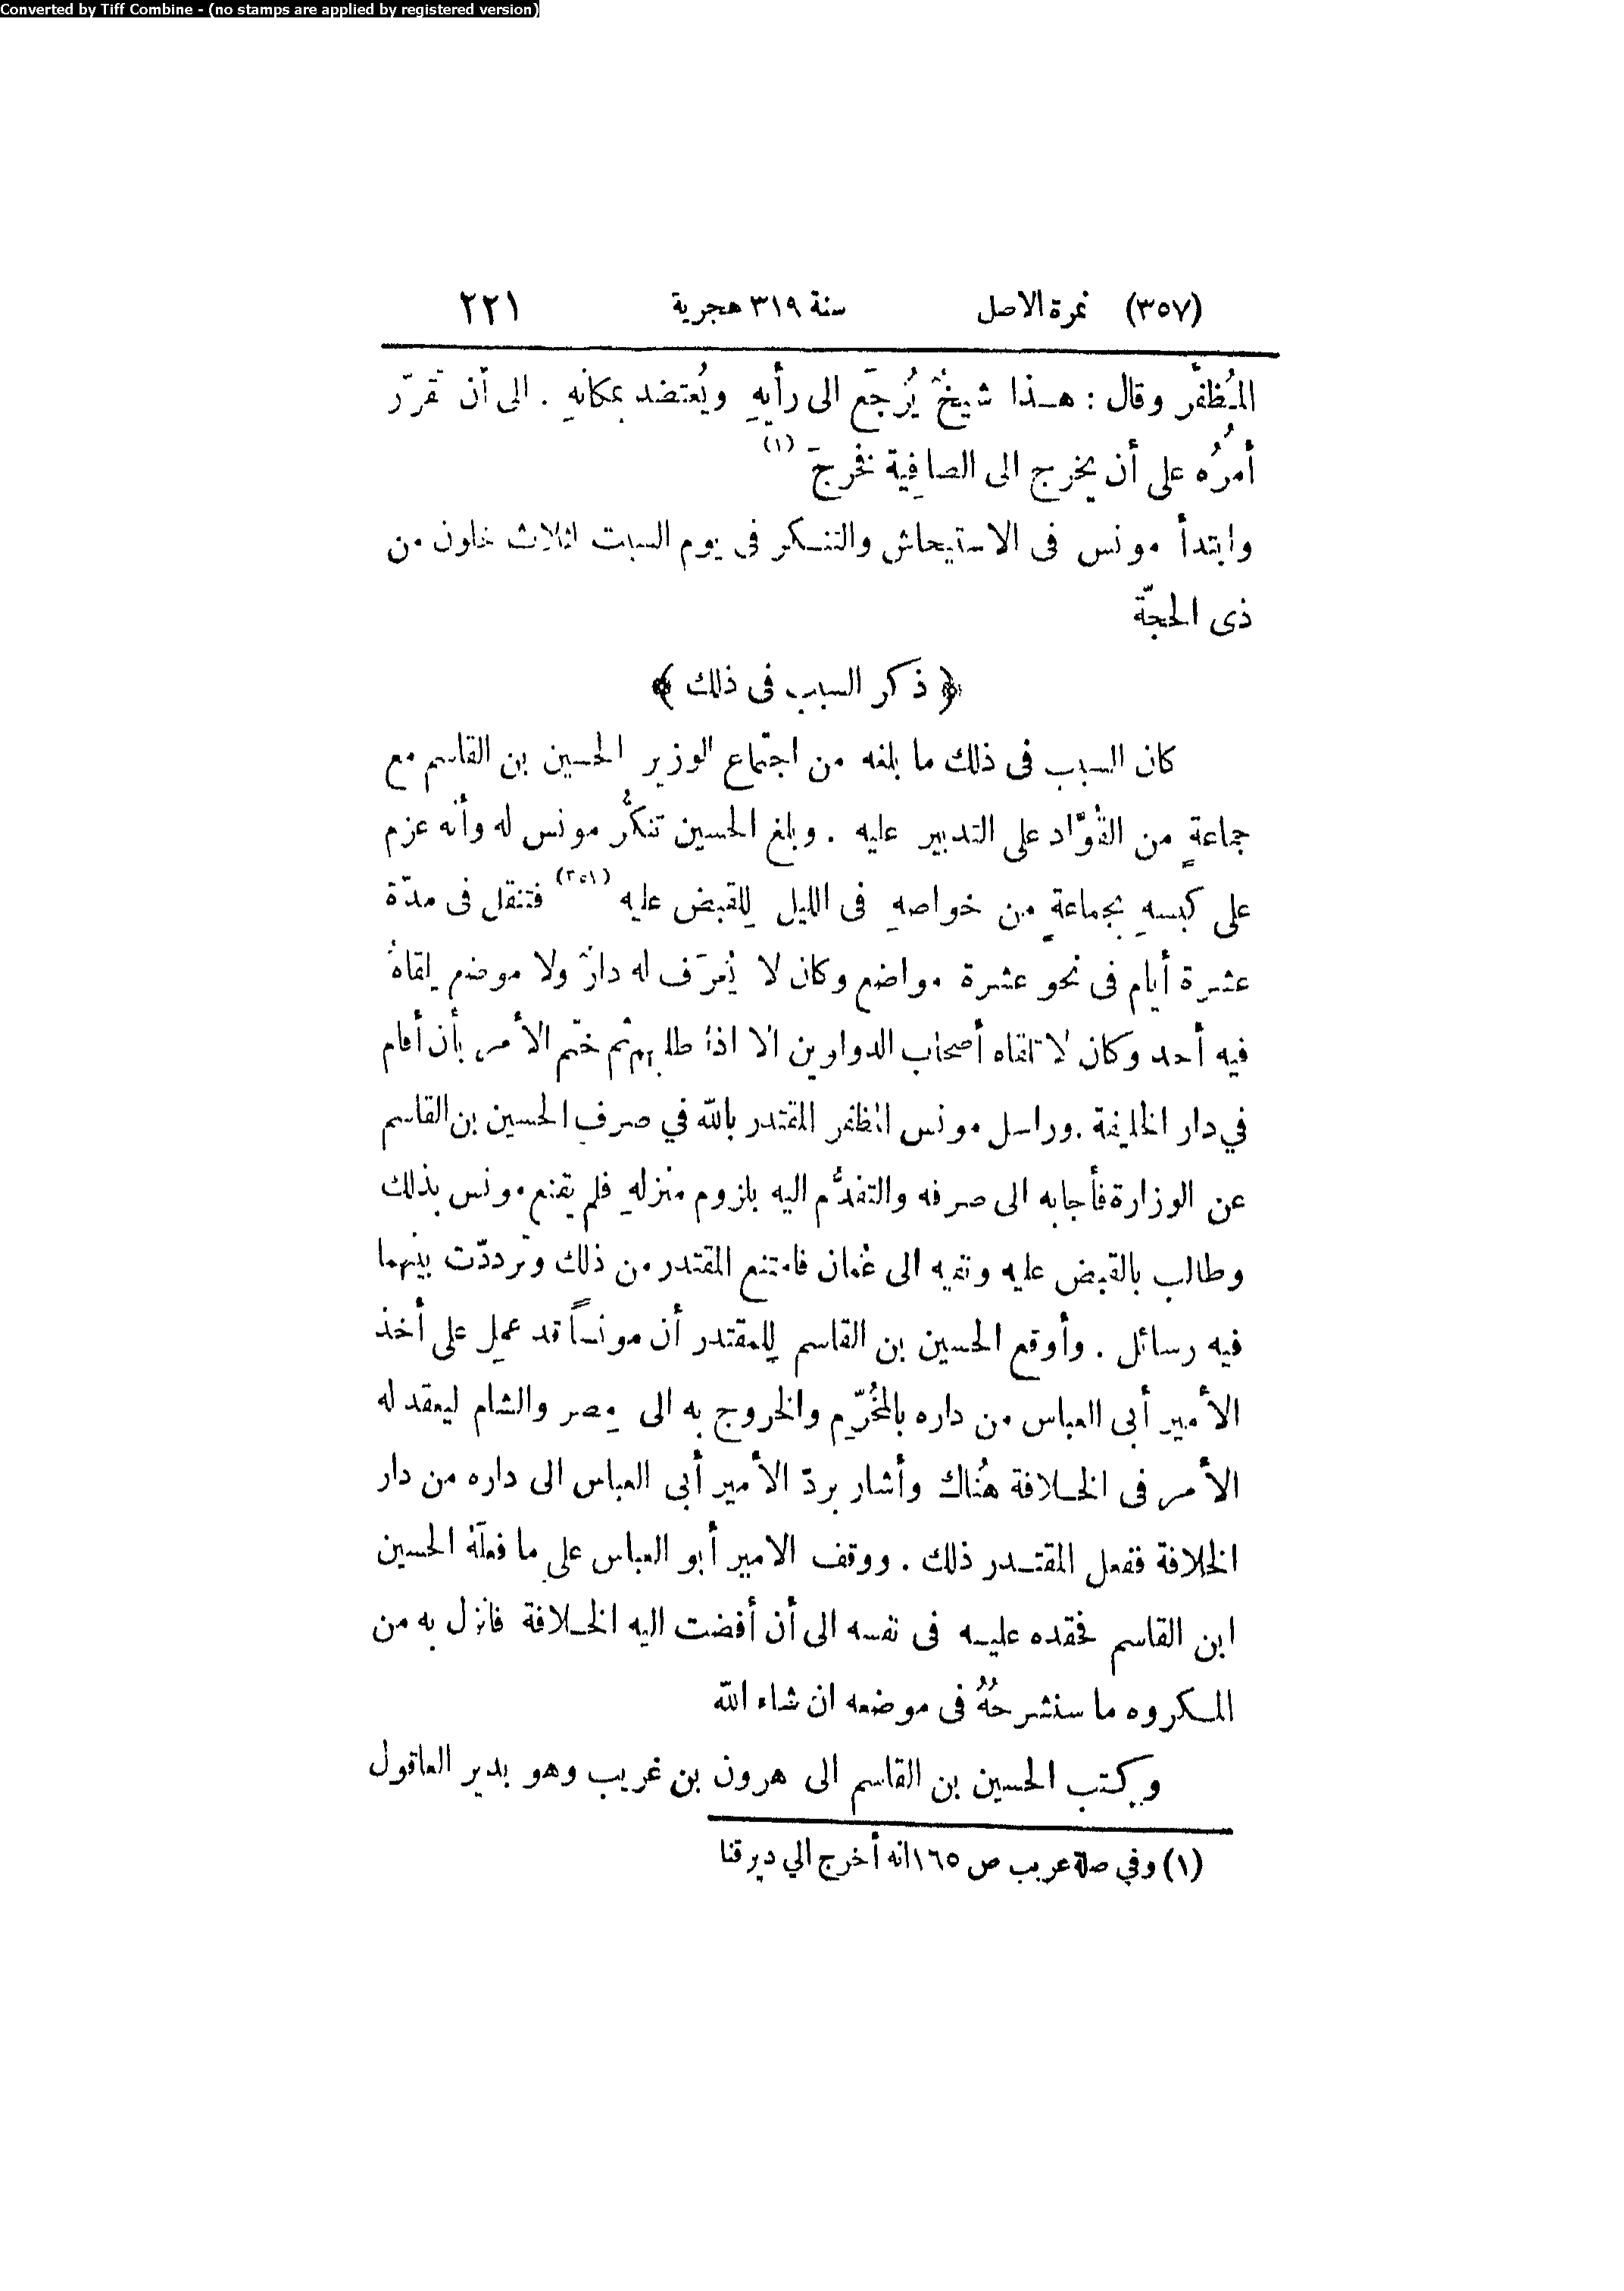 Converted by Tiff Combine - (no stamps are applied by registered version)
(٣٥٧) نمرة الاصل سنة ٣١٩ هجرية ٢٢١
المُظفَّر وقال : هـذا شيخٌ يُرجَع الى رأيهِ ويُعتضد بمكانهِ . الى أن تَقرّر
أمرُه على أن يخرج الى الصافِية فخرجَ (١)
وابتدأ مونس فى الاستيحاش والتنـكر فى يوم السبت لثلاث خلون من
ذى الحجّة
﴿ ذكر السبب فى ذلك ﴾
كان السبب فى ذلك ما بلغه من اجتماع الوزير الحسين بن القاسم مع
جماعةٍ من القُوّاد على التدبير عليه . وبلغ الحسين تنكُّر مونس له وأنه عزم
على كبسهِ بجماعةٍ من خواصهِ فى الليل لِلقبض عليه (٣٥٨) فتنقل فى مدّة
عشرة أيام فى نحو عشرة مواضع وكان لا يُعرَف له دارٌ ولا موضع يلقاهُ
فيه أحد وكان لا تلقاه أصحاب الدواوين الا اذا طلبهم ثم ختم الأمر بأن أقام
في دار الخليفة .وراسل مونس المظفر المقتدر بالله في صرف الحسين بن القاسم
عن الوزارة فأجابه الى صرفه والتقدُّم اليه بلزوم منزلهِ فلم يقنع مونس بذلك
وطالب بالقبض عليه ونفيه الى عُمان فامتنع المقتدر من ذلك وترددّت بينهما
فيه رسائل . وأوقع الحسين بن القاسم لِلمقتدر أن مونساً قد عمِل على أخذ
الأمير أبى العباس من داره بالمُخرّم والخروج به الى مِصر والشام ليعقد له
الأمر فى الخـلافة هُناك وأشار بردّ الأمير أبى العباس الى داره من دار
الخلافة ففعل المقتـدر ذلك . ووقف الامير أبو العباس على ما فعلَهُ الحسين
ابن القاسم فحقده عليـه فى نفسه الى أن أفضت اليه الخـلافة فانزل به من
المـكروه ما سنشرحُهُ فى موضعه ان شاء الله
وكتب الحسين بن القاسم الى هرون بن غريب وهو بدير العاقول
(١) وفي صلة عريب ص ١٦٥ انه أخرج الي دير قنا